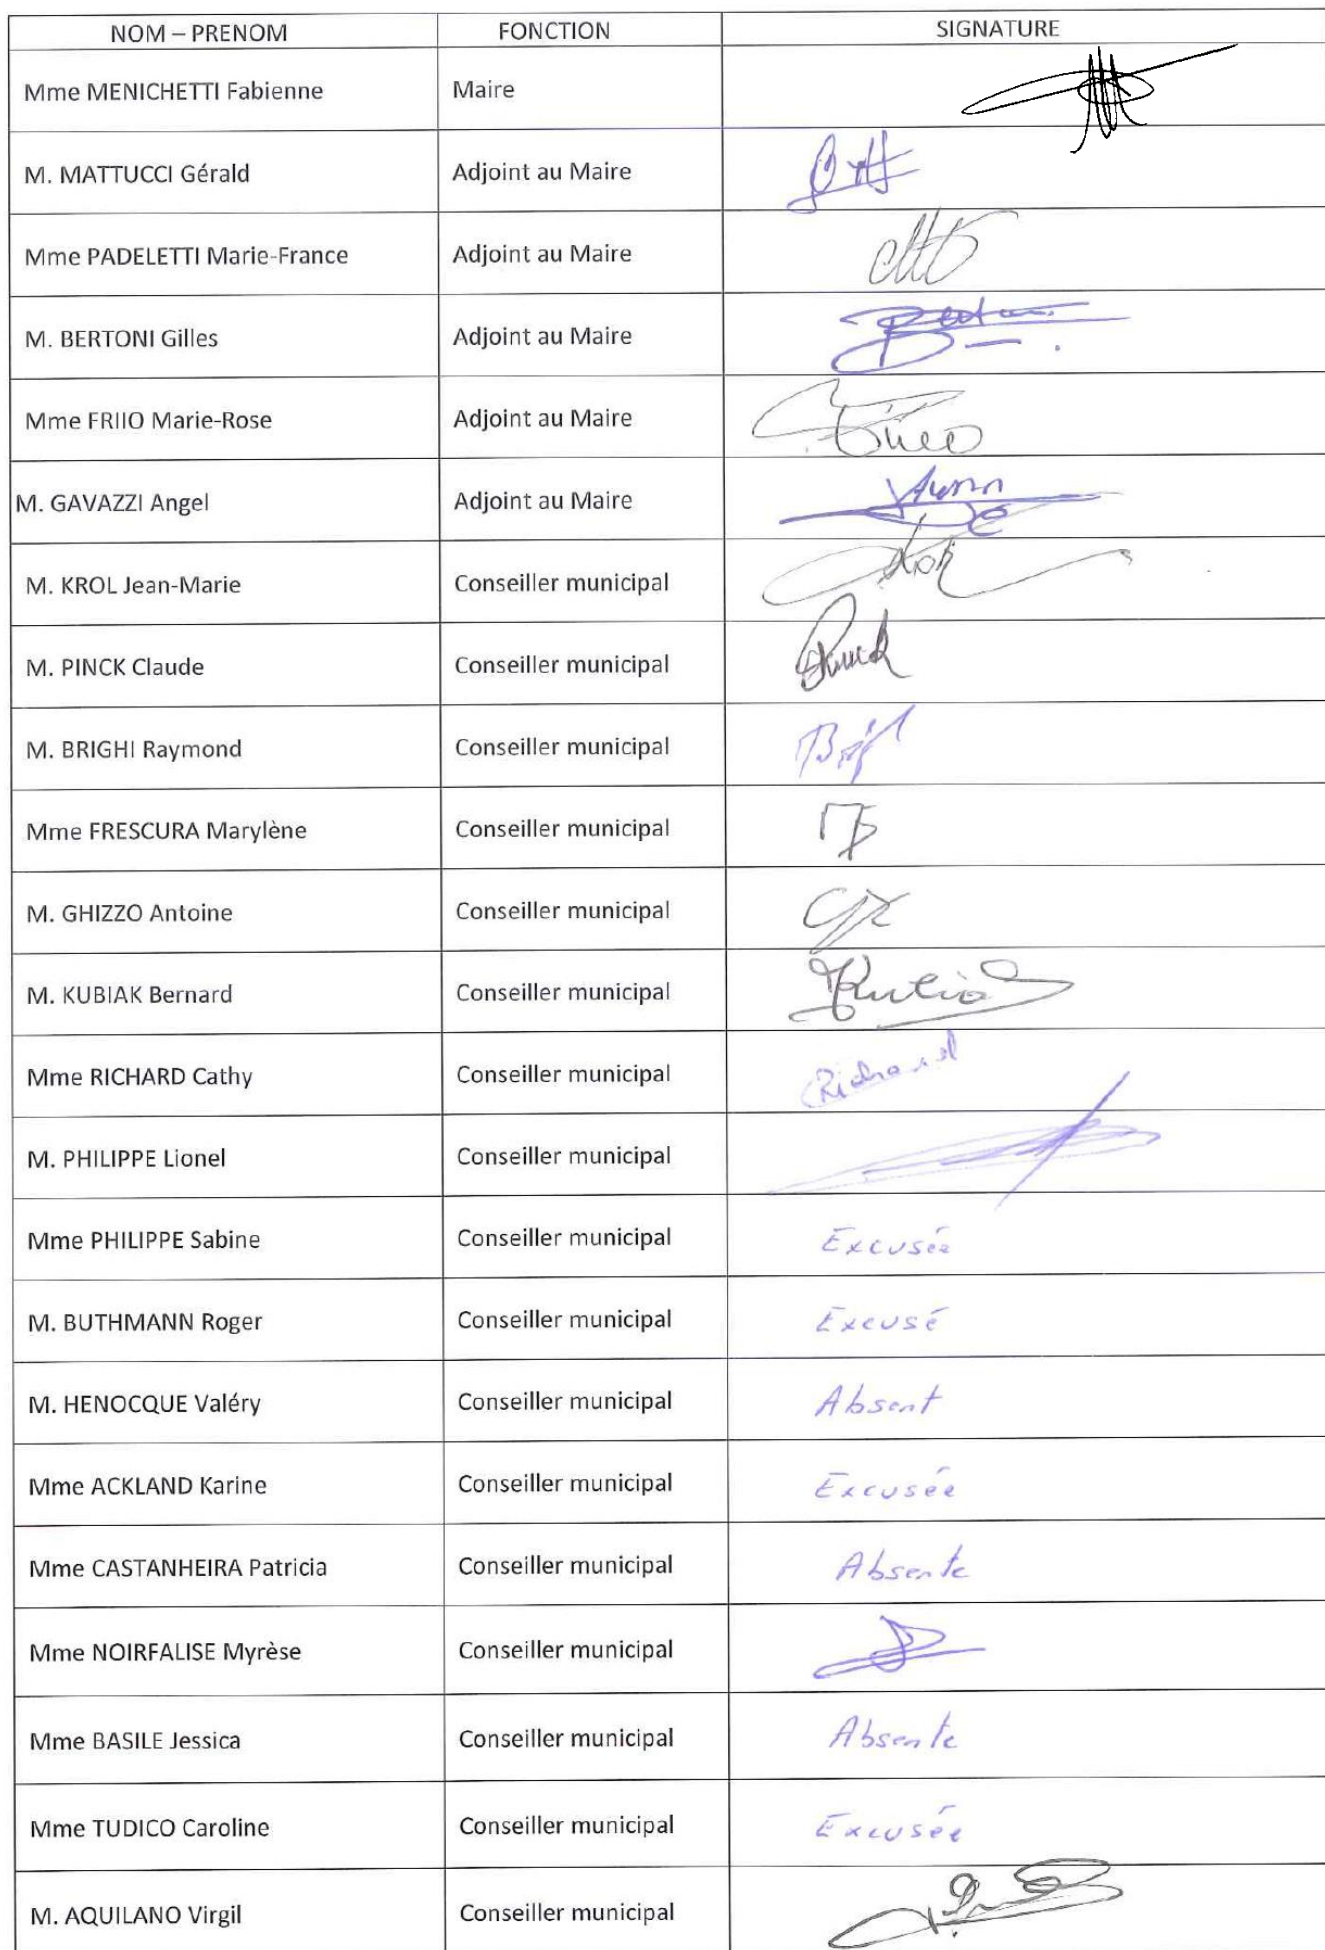 NOM – PRENOM FONCTION SIGNATURE
Mme MENICHETTI Fabienne Maire
M. MATTUCCI Gérald Adjoint au Maire
Mme PADELETTI Marie-France Adjoint au Maire
M. BERTONI Gilles Adjoint au Maire
Mme FRIIO Marie-Rose Adjoint au Maire
M. GAVAZZI Angel Adjoint au Maire
M. KROL Jean-Marie Conseiller municipal
M. PINCK Claude Conseiller municipal
M. BRIGHI Raymond Conseiller municipal
Mme FRESCURA Marylène Conseiller municipal
M. GHIZZO Antoine Conseiller municipal
M. KUBIAK Bernard Conseiller municipal
Mme RICHARD Cathy Conseiller municipal Richard
M. PHILIPPE Lionel Conseiller municipal
Mme PHILIPPE Sabine Conseiller municipal Excusée
M. BUTHMANN Roger Conseiller municipal Excusé
M. HENOCQUE Valéry Conseiller municipal Absent
Mme ACKLAND Karine Conseiller municipal Excusée
Mme CASTANHEIRA Patricia Conseiller municipal Absente
Mme NOIRFALISE Myrèse Conseiller municipal
Mme BASILE Jessica Conseiller municipal Absente
Mme TUDICO Caroline Conseiller municipal Excusée
M. AQUILANO Virgil Conseiller municipal